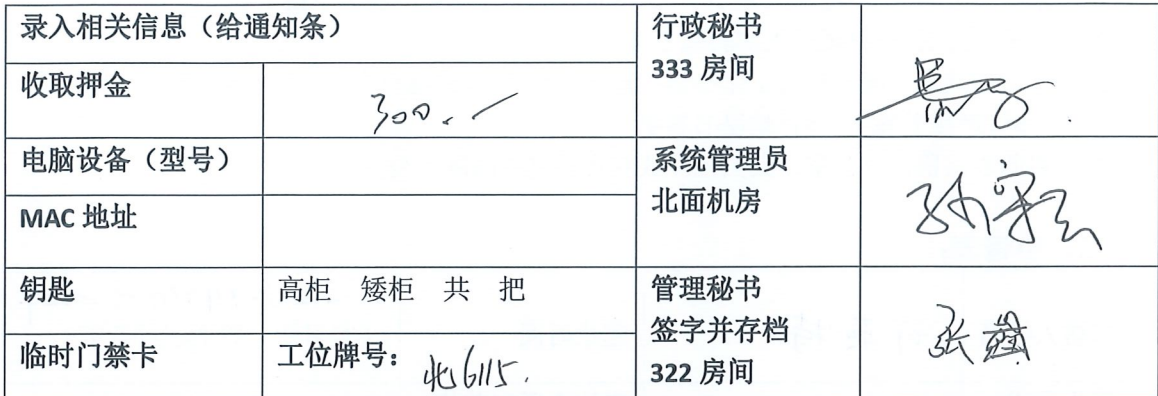 录入相关信息（给通知条）
行政秘书
333 房间
收取押金
300.-
电脑设备（型号）
系统管理员
北面机房
MAC 地址
钥匙
高柜 矮柜 共 把
管理秘书
签字并存档
322 房间
临时门禁卡
工位牌号：
北6115.
张